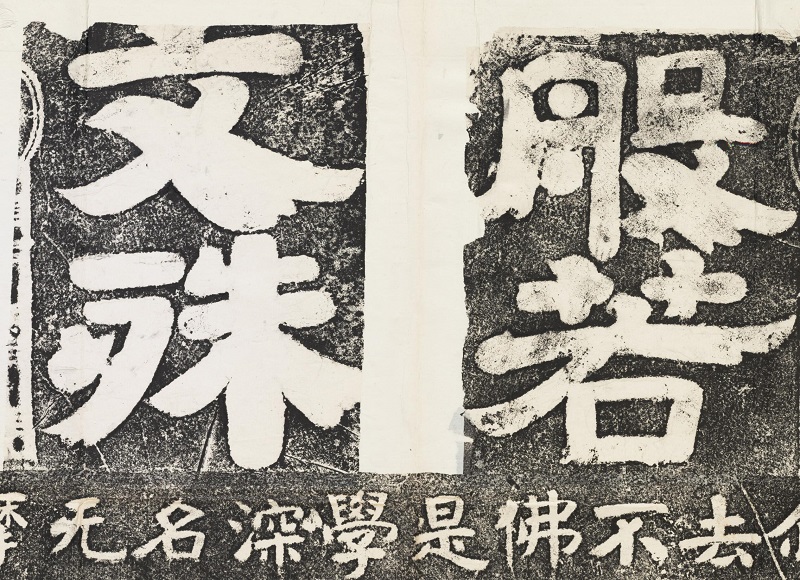 般若
文殊
去不佛是學深名无